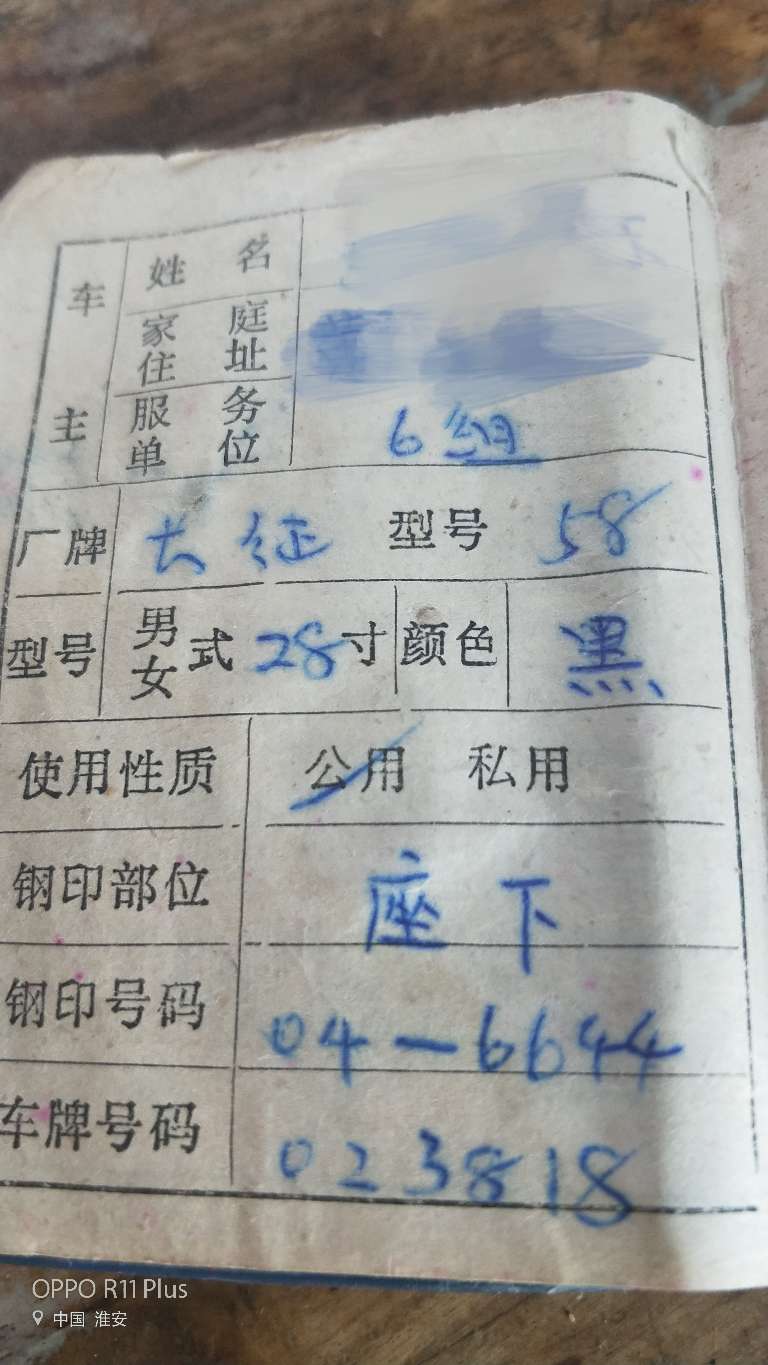 车主 姓名
家庭住址
服务单位 6组
厂牌 长征 型号 58
型号 男女式 28寸 颜色 黑
使用性质 公用 私用
钢印部位 座下
钢印号码 04-6644
车牌号码 023818
OPPO R11 Plus
中国 淮安